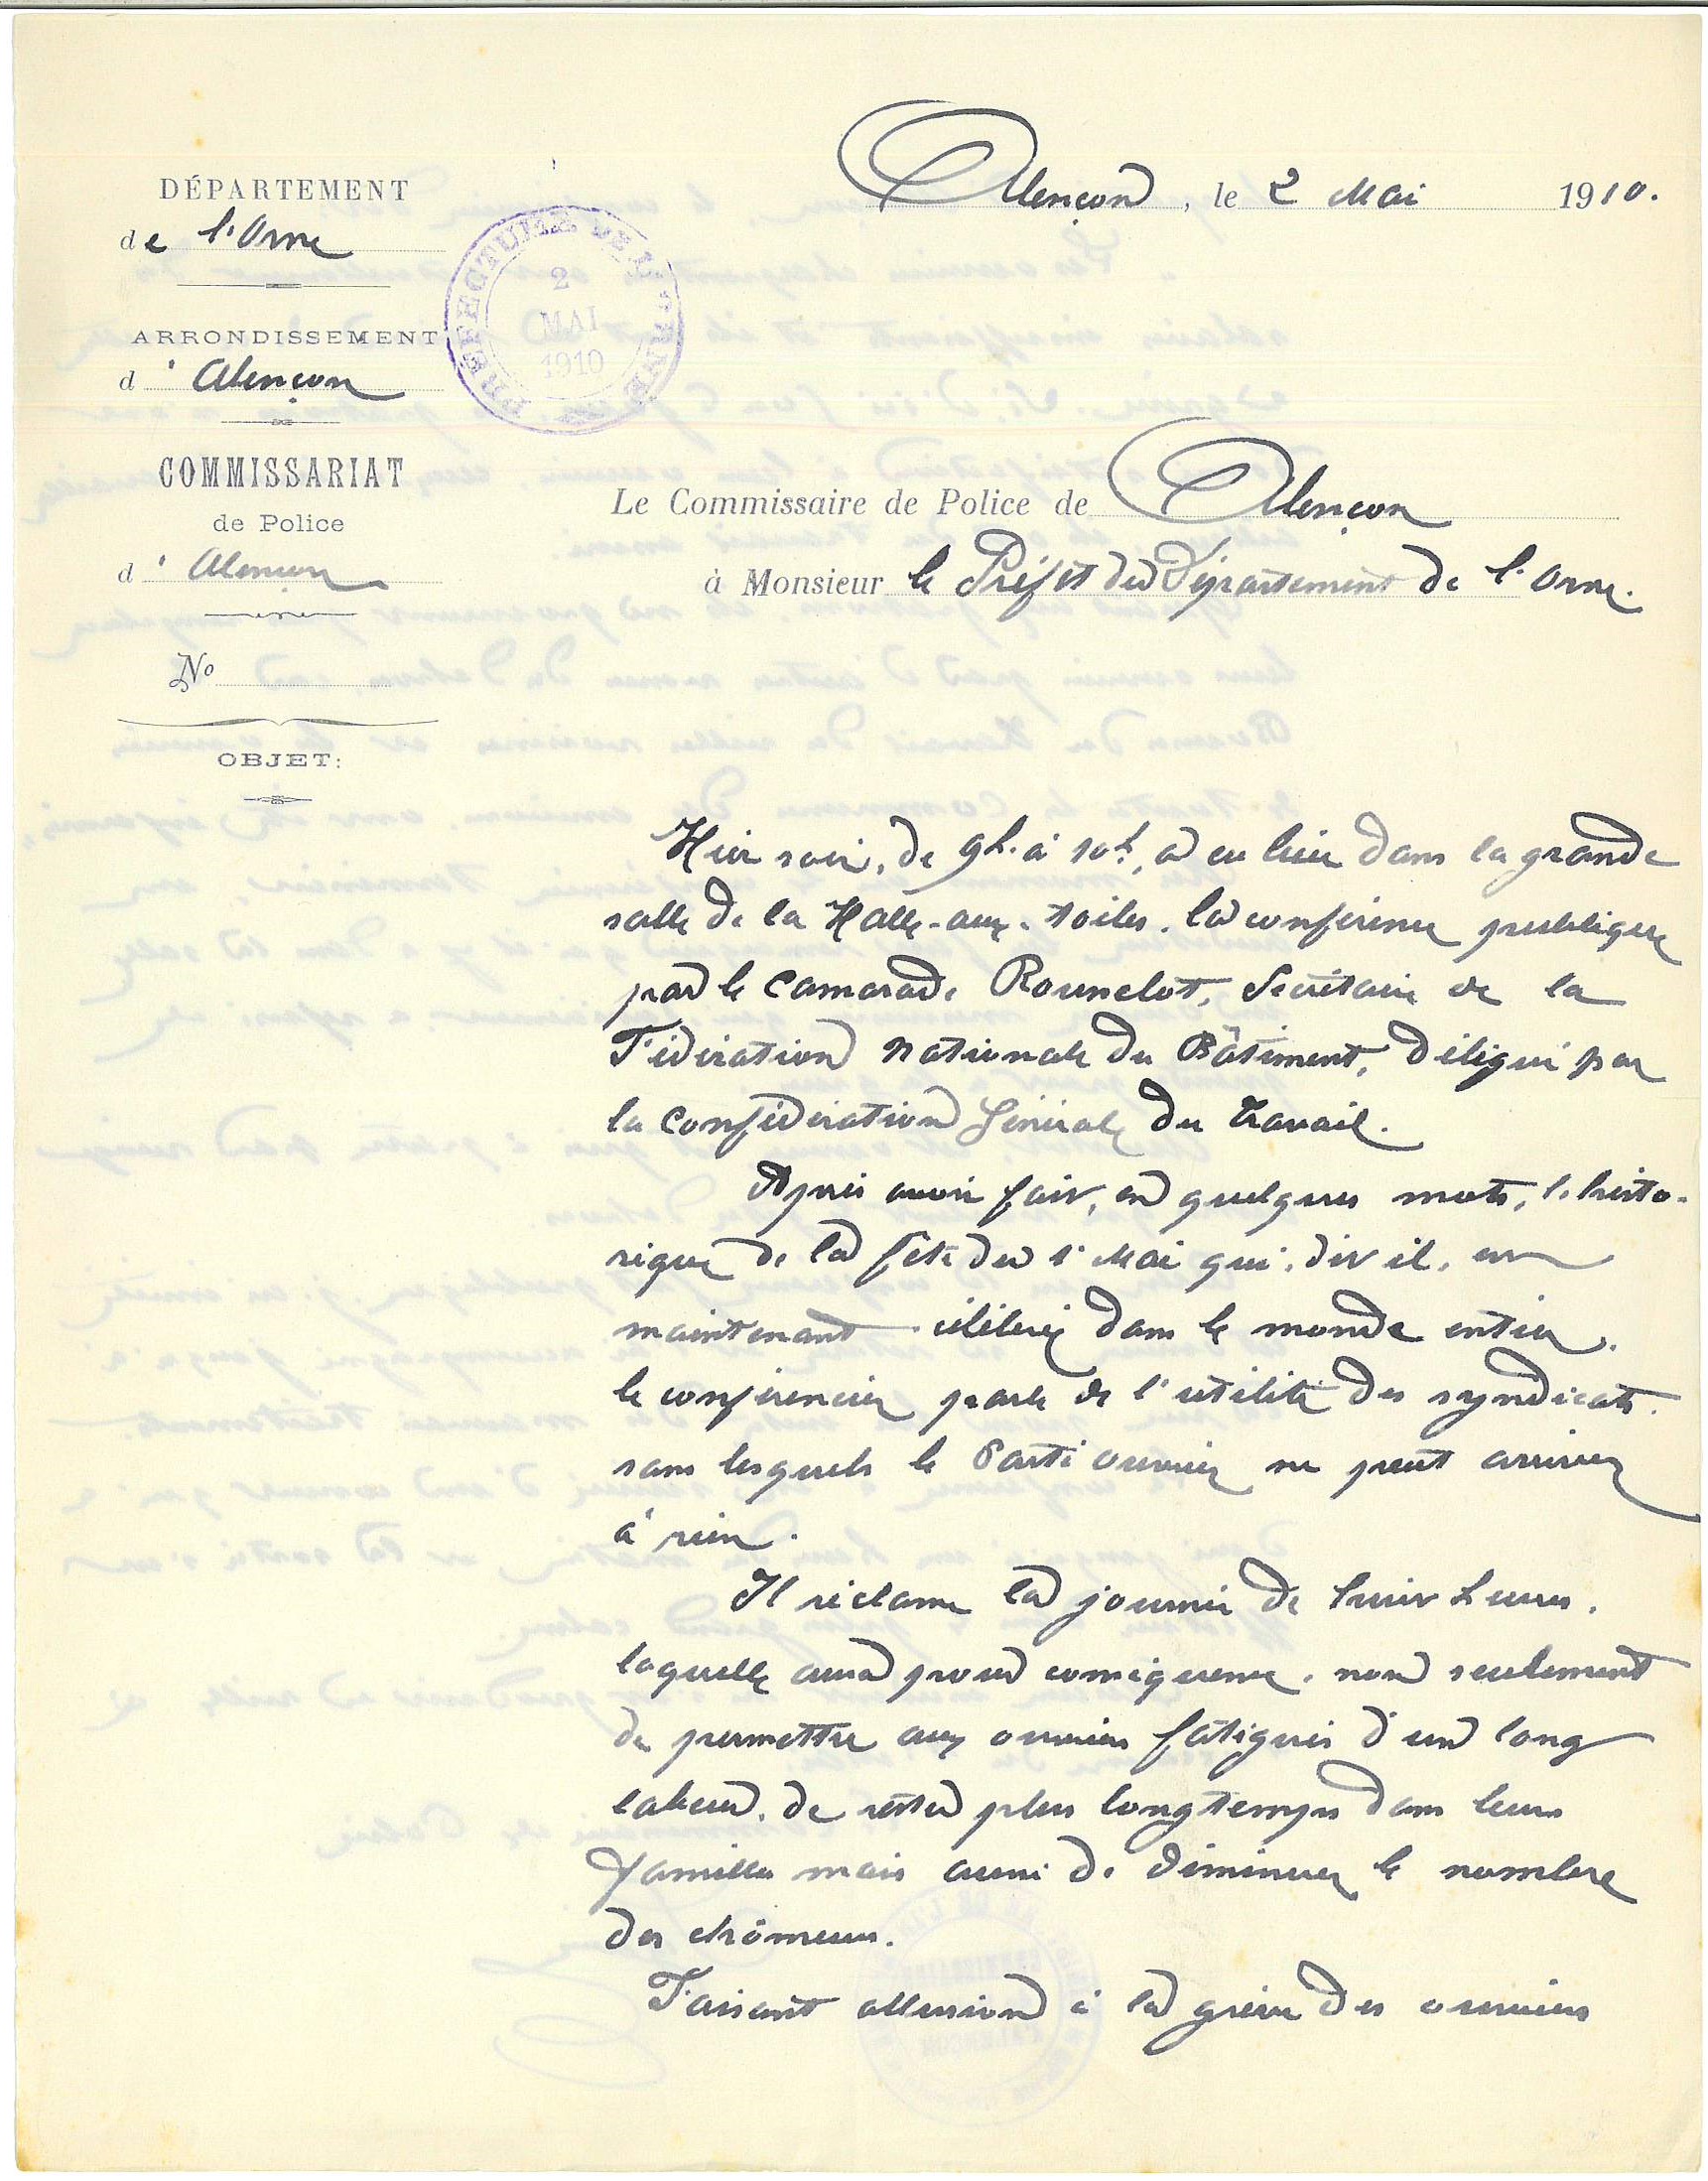 DÉPARTEMENT
de l'Orne
ARRONDISSEMENT
d'Alençon
COMMISSARIAT
de Police
d'Alençon
No
OBJET:
PRÉFECTURE DE L'ORNE
2
MAI
1910
Alençon, le 2 Mai 1910.
Le Commissaire de Police de Alençon
à Monsieur le Préfet du Département de l'Orne.
Hier soir, de 9h. à 10h, a eu lieu dans la grande
salle de la Halle-aux-toiles, la conférence publique
par le Camarade Rousselot, Secrétaire de la
Fédération Nationale du Bâtiment, délégué par
la Confédération Générale du Travail.
Après avoir fait, en quelques mots, l'histo-
rique de la fête du 1er Mai qui, dit il, est
maintenant célébrée dans le monde entier,
le conférencier parle de l'utilité des syndicats
sans lesquels le Parti ouvrier ne peut arriver
à rien.
Il réclame la journée de huit heures,
laquelle aura pour conséquence, non seulement
de permettre aux ouvriers fatigués d'un long
labeur, de rester plus longtemps dans leurs
familles mais aussi de diminuer le nombre
des chômeurs.
Faisant allusion à la grève des ouvriers